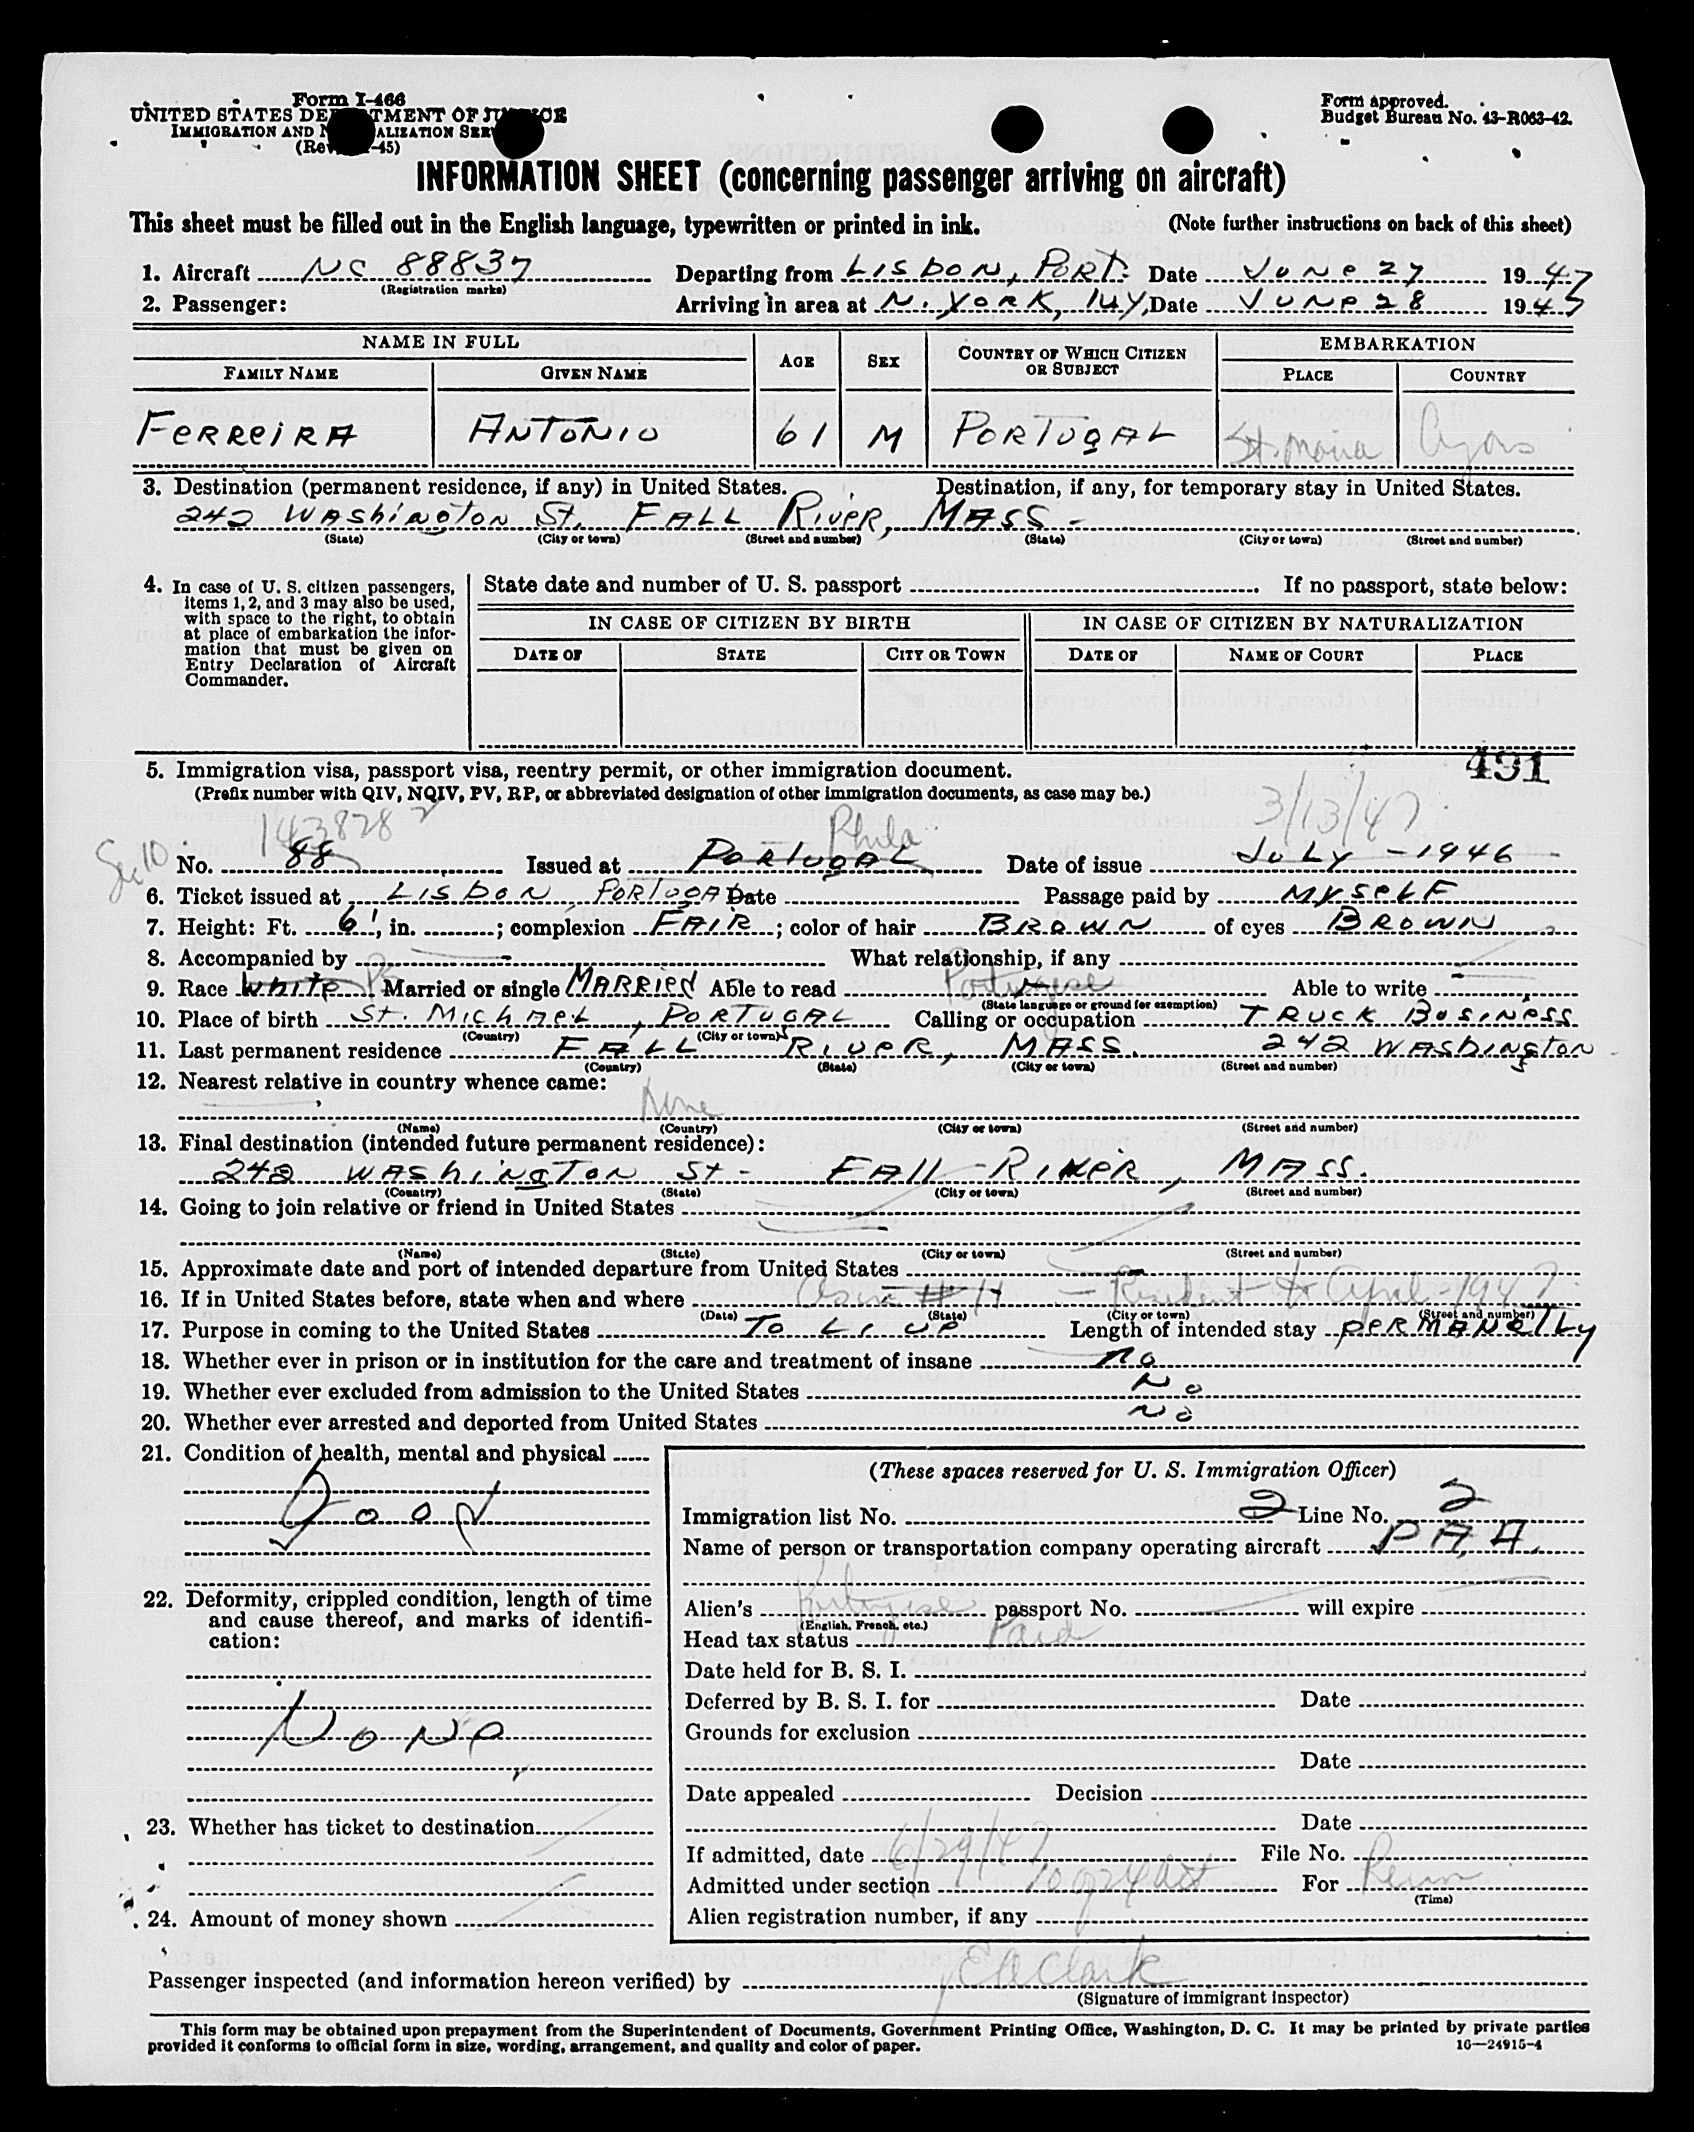 Form I-466
UNITED STATES DEPARTMENT OF JUSTICE
IMMIGRATION AND NATURALIZATION SERVICE
(Rev. -45)
Form approved.
Budget Bureau No. 43-R063-42.
INFORMATION SHEET (concerning passenger arriving on aircraft)
This sheet must be filled out in the English language, typewritten or printed in ink. (Note further instructions on back of this sheet)
1. Aircraft NC 88837 Departing from LISBON, PORT. Date JUNE 27 1947
(Registration marks)
2. Passenger: Arriving in area at N. YORK, N.Y, Date JUNE 28 1947
NAME IN FULL AGE SEX COUNTRY OF WHICH CITIZEN OR SUBJECT EMBARKATION
FAMILY NAME GIVEN NAME PLACE COUNTRY
FERREIRA ANTONIO 61 M PORTUGAL St. Maria Azores
3. Destination (permanent residence, if any) in United States. Destination, if any, for temporary stay in United States.
242 WAShiNgTON ST. FALL RIVER, MASS -
(State) (City or town) (Street and number) (State) (City or town) (Street and number)
4. In case of U. S. citizen passengers, items 1, 2, and 3 may also be used, with space to the right, to obtain at place of embarkation the information that must be given on Entry Declaration of Aircraft Commander.
State date and number of U. S. passport If no passport, state below:
IN CASE OF CITIZEN BY BIRTH IN CASE OF CITIZEN BY NATURALIZATION
DATE OF STATE CITY OR TOWN DATE OF NAME OF COURT PLACE
491
5. Immigration visa, passport visa, reentry permit, or other immigration document.
(Prefix number with QIV, NQIV, PV, RP, or abbreviated designation of other immigration documents, as case may be.)
1438282 Phila 3/13/47
No. 88 Issued at PORTUGAL Date of issue JULY - 1946
6. Ticket issued at LISBON, PORTUGAL Date Passage paid by MYSELF
7. Height: Ft. 6', in. ; complexion FAIR ; color of hair BROWN of eyes BROWN
8. Accompanied by What relationship, if any
9. Race White Married or single MARRIED Able to read Portuguese Able to write
(State language or ground for exemption)
10. Place of birth ST. MICHAEL, PORTUGAL Calling or occupation TRUCK BUSINESS
(Country) (City or town)
11. Last permanent residence FALL RIVER, MASS. 242 WASHINGTON
(Country) (State) (City or town) (Street and number)
12. Nearest relative in country whence came:
None
(Name) (Country) (City or town) (Street and number)
13. Final destination (intended future permanent residence):
242 WAShiNgTON St - FAll - RIVER, MASS.
(Country) (State) (City or town) (Street and number)
14. Going to join relative or friend in United States
(Name) (State) (City or town) (Street and number)
15. Approximate date and port of intended departure from United States
16. If in United States before, state when and where As in # 11 - Resident to April - 1947
(Date) (State) (City or town) (Street and number)
17. Purpose in coming to the United States TO LIVE Length of intended stay PERMANETLY
18. Whether ever in prison or in institution for the care and treatment of insane NO
19. Whether ever excluded from admission to the United States NO
20. Whether ever arrested and deported from United States NO
21. Condition of health, mental and physical
Good
22. Deformity, crippled condition, length of time and cause thereof, and marks of identification:
NONE
23. Whether has ticket to destination
24. Amount of money shown
(These spaces reserved for U. S. Immigration Officer)
Immigration list No. 2 Line No. 2
Name of person or transportation company operating aircraft P.A.A.
Alien's Portuguese passport No. will expire
(English, French, etc.)
Head tax status Paid
Date held for B. S. I.
Deferred by B. S. I. for Date
Grounds for exclusion
Date
Date appealed Decision
Date
If admitted, date 6/29/47 File No.
Admitted under section 10 of 24 Act For Perm
(Time)
Alien registration number, if any
Passenger inspected (and information hereon verified) by Clark
(Signature of immigrant inspector)
This form may be obtained upon prepayment from the Superintendent of Documents, Government Printing Office, Washington, D. C. It may be printed by private parties
provided it conforms to official form in size, wording, arrangement, and quality and color of paper.
16—24915-4